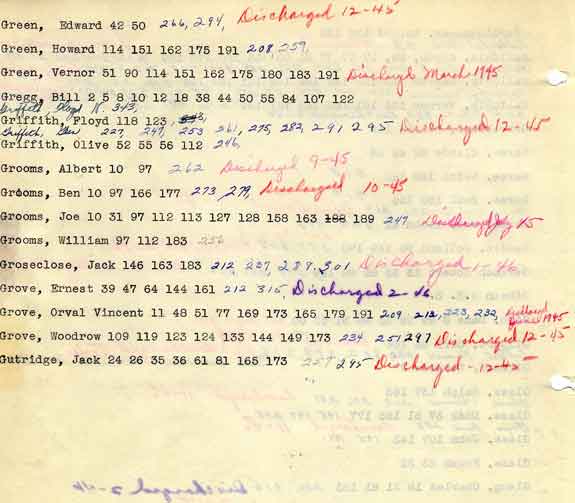 Green, Edward 42 50 266, 294, Discharged 12-45
Green, Howard 114 151 162 175 191 208, 259,
Green, Vernor 51 90 114 151 162 175 180 183 191 Discharged March 1945
Gregg, Bill 2 5 8 10 12 18 38 44 50 55 84 107 122
Griffith, Floyd 18, 343,
Griffith, Floyd 118 123
Griffith, Glen 227, 247, 253 261, 275, 282, 291 295 Discharged 12-45
Griffith, Olive 52 55 56 112 246,
Grooms, Albert 10 97 262 Discharged 9-45
Grooms, Ben 10 97 166 177 273, 279, Discharged 10-45
Grooms, Joe 10 31 97 112 113 127 128 158 163 188 189 247 Discharged July 45
Grooms, William 97 112 183 256
Groseclose, Jack 146 163 183 212, 237, 289, 301 Discharged 1-46
Grove, Ernest 39 47 64 144 161 212 315, Discharged 2-46
Grove, Orval Vincent 11 48 51 77 169 173 165 179 191 209 213, 223, 232, 1945
Grove, Woodrow 109 119 123 124 133 144 149 173 234 251 297 Discharged 12-45
Gutridge, Jack 24 26 35 36 61 81 165 173 257 295 Discharged - 12-45